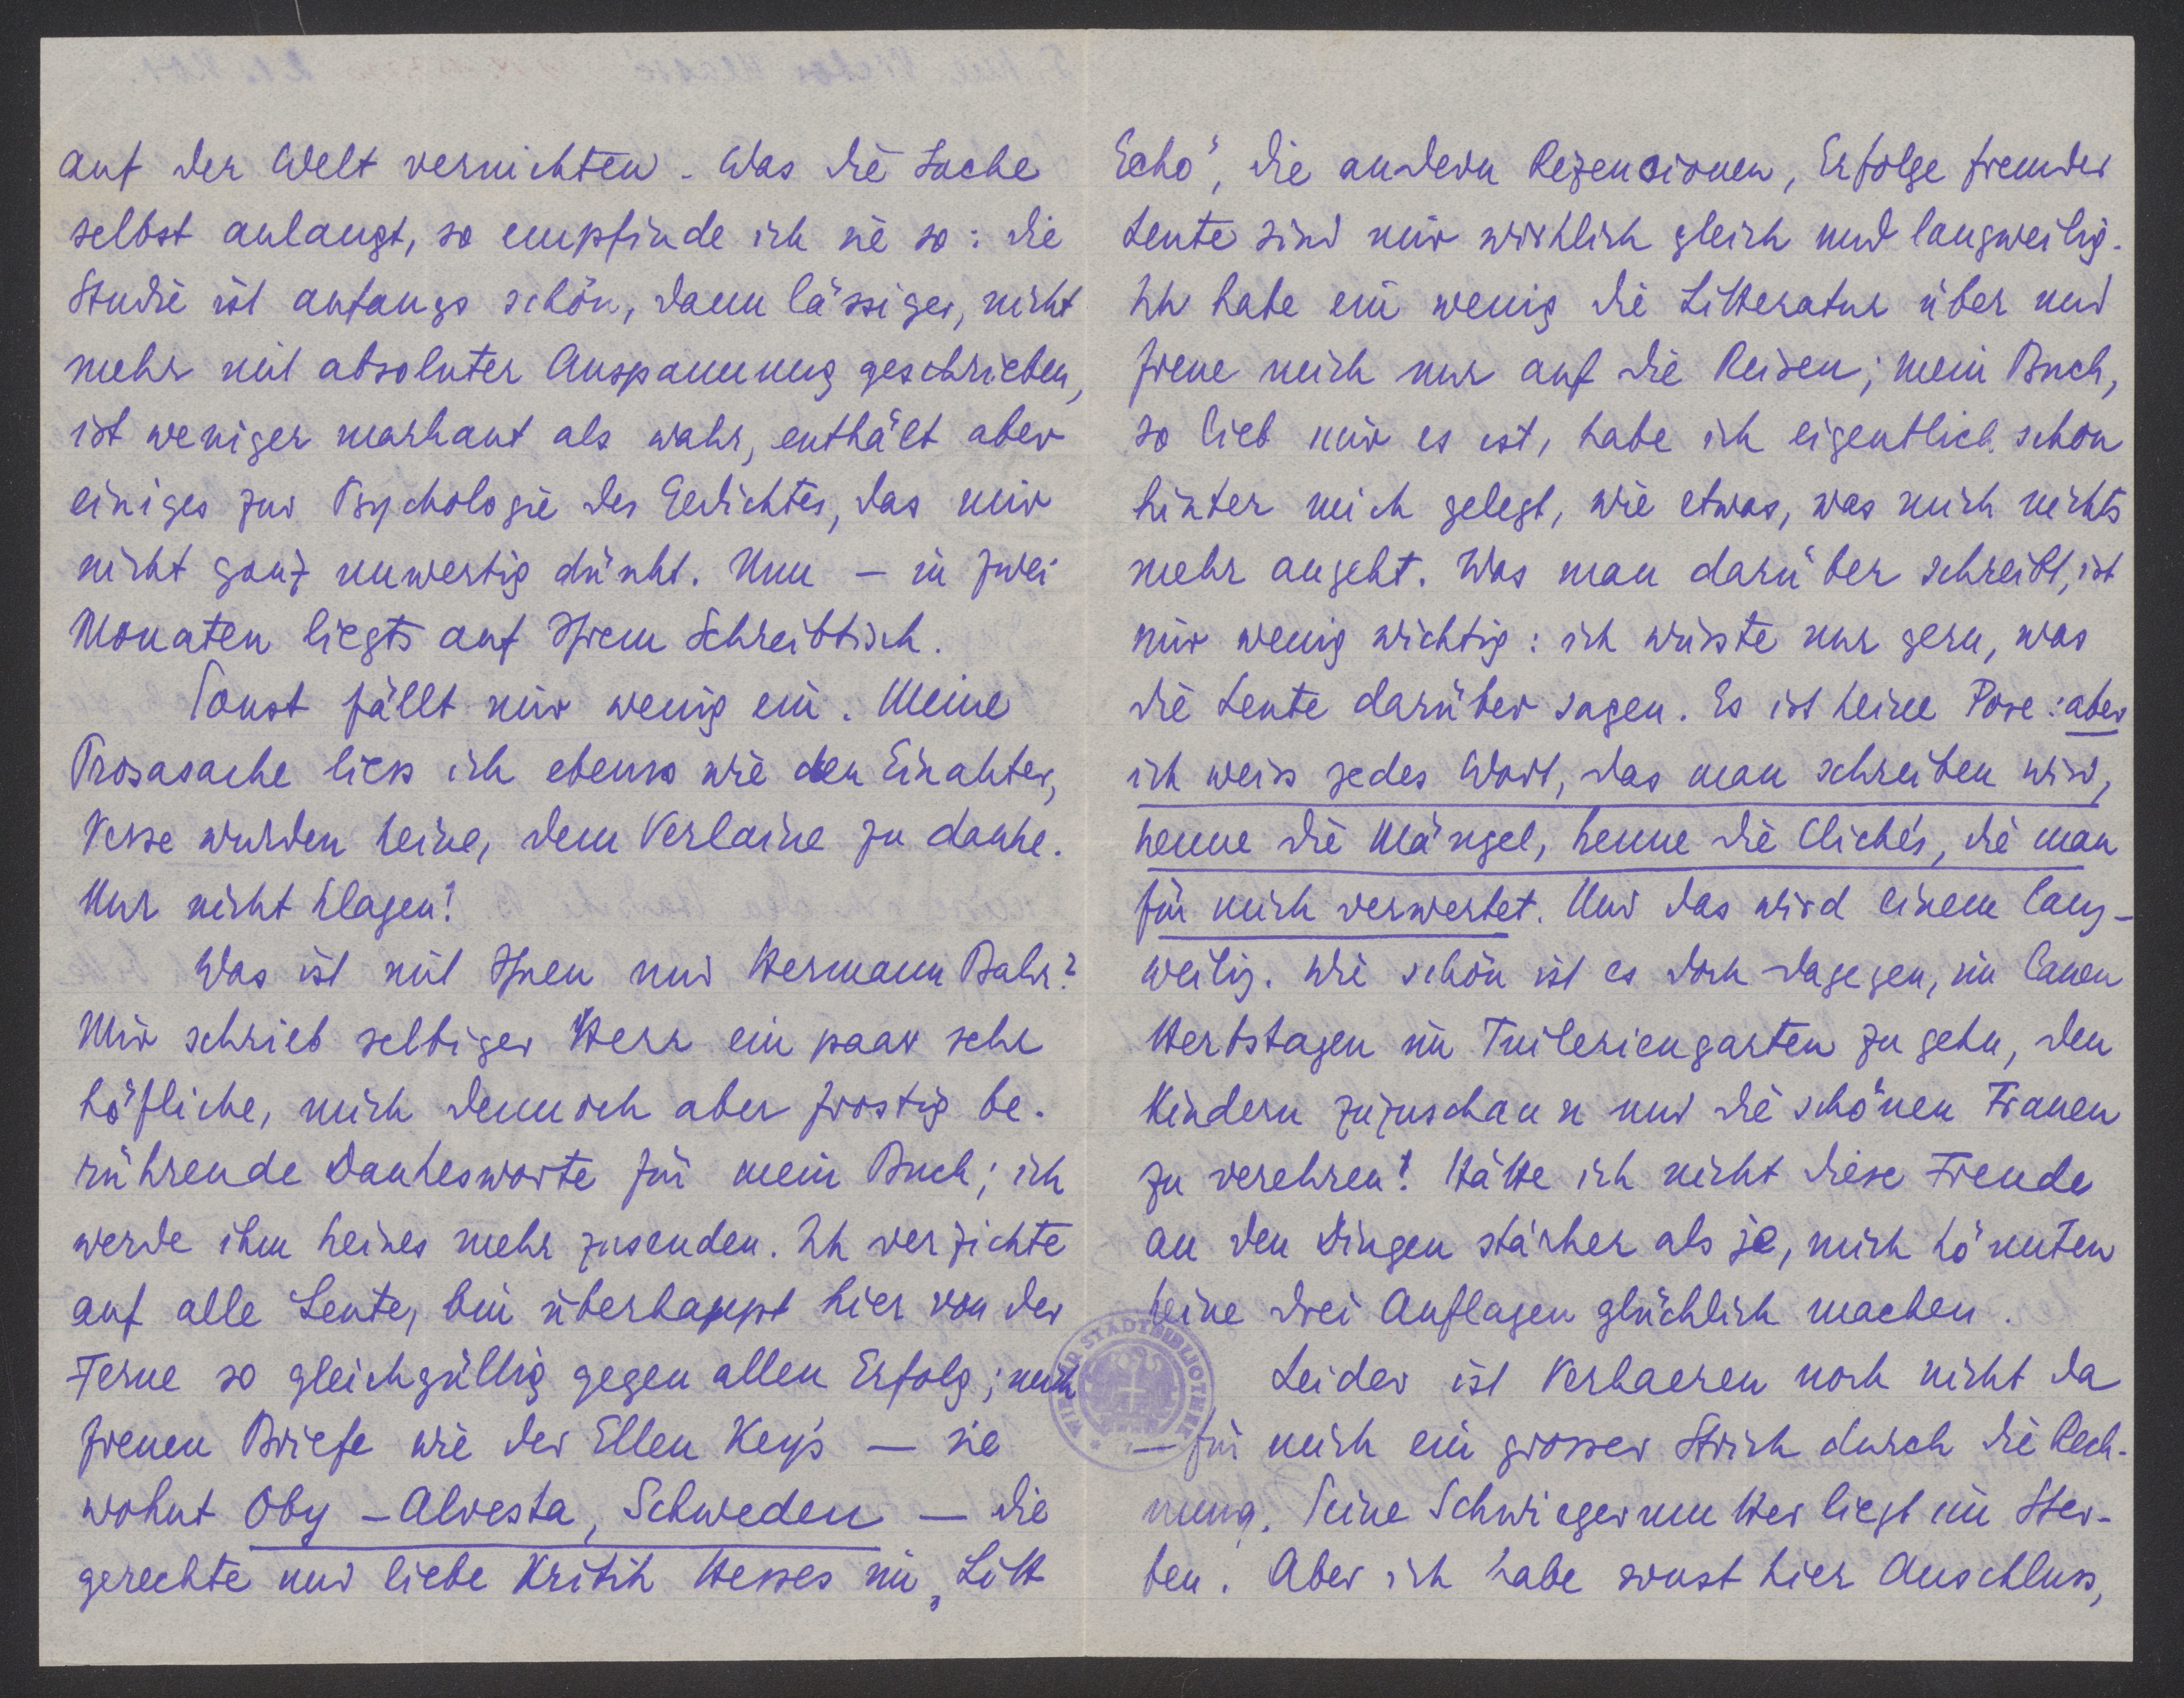 auf der Welt vernichten. Was die Sache
selbst anlangt, so empfinde ich sie so: die
Studie ist anfangs schön, dann lässiger, nicht
mehr mit absoluter Anspannung geschrieben,
ist weniger markant als wahr, enthält aber
einiges zur Psychologie des Gedichtes, das mir
nicht ganz unwertig dünkt. Nun – in zwei
Monaten liegts auf Ihrem Schreibtisch.
Sonst fällt mir wenig ein. Meine
Prosasache liess ich ebenso wie den Einakter,
Verse wurden keine, dem Verlaine zu danke.
Nur nicht klagen!
Was ist mit Ihnen und Hermann Bahr?
Mir schrieb selbiger Herr ein paar sehr
höfliche, mich dennoch aber frostig be-
rührende Dankesworte für mein Buch; ich
werde ihm keines mehr zusenden. Ich verzichte
auf alle Leute, bin überhaupt hier von der
Ferne so gleichgültig gegen allen Erfolg; mich
freuen Briefe wie der Ellen Key's – sie
wohnt Oby – Alvesta, Schweden – die
gerechte und liebe Kritik Hesses im „Litt
Echo", die andern Rezensionen, Erfolge fremder
Leute sind mir wirklich gleich und langweilig.
Ich habe ein wenig die Litteratur über und
freue mich nur auf die Reisen; mein Buch,
so lieb mir es ist, habe ich eigentlich schon
hinter mich gelegt, wie etwas, was mich nichts
mehr angeht. Was man darüber schreibt, ist
mir wenig wichtig: ich wüsste nur gern, was
die Leute darüber sagen. Es ist keine Pose: aber
ich weiss jedes Wort, das man schreiben wird,
kenne die Mängel, kenne die Clichés, die man
für mich verwertet. Und das wird einem lang-
weilig. Wie schön ist es doch dagegen, in lauen
Herbstagen im Tuileriengarten zu gehn, den
Kindern zuzuschaun und die schönen Frauen
zu verehren! Hätte ich nicht diese Freude
an den Dingen stärker als je, mich könnten
keine drei Auflagen glücklich machen.
Leider ist Verhaeren noch nicht da
– für mich ein grosser Strich durch die Rech-
nung. Seine Schwiegermutter liegt im Ster-
ben. Aber ich habe sonst hier Anschluss,
WIENER STADTBIBLIOTHEK